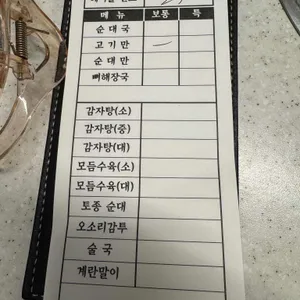 메 뉴 보통 특
순 대 국
고 기 만
순 대 만
뼈해장국
감자탕(소)
감자탕(중)
감자탕(대)
모듬수육(소)
모듬수육(대)
토종 순대
오소리감투
술 국
계란말이